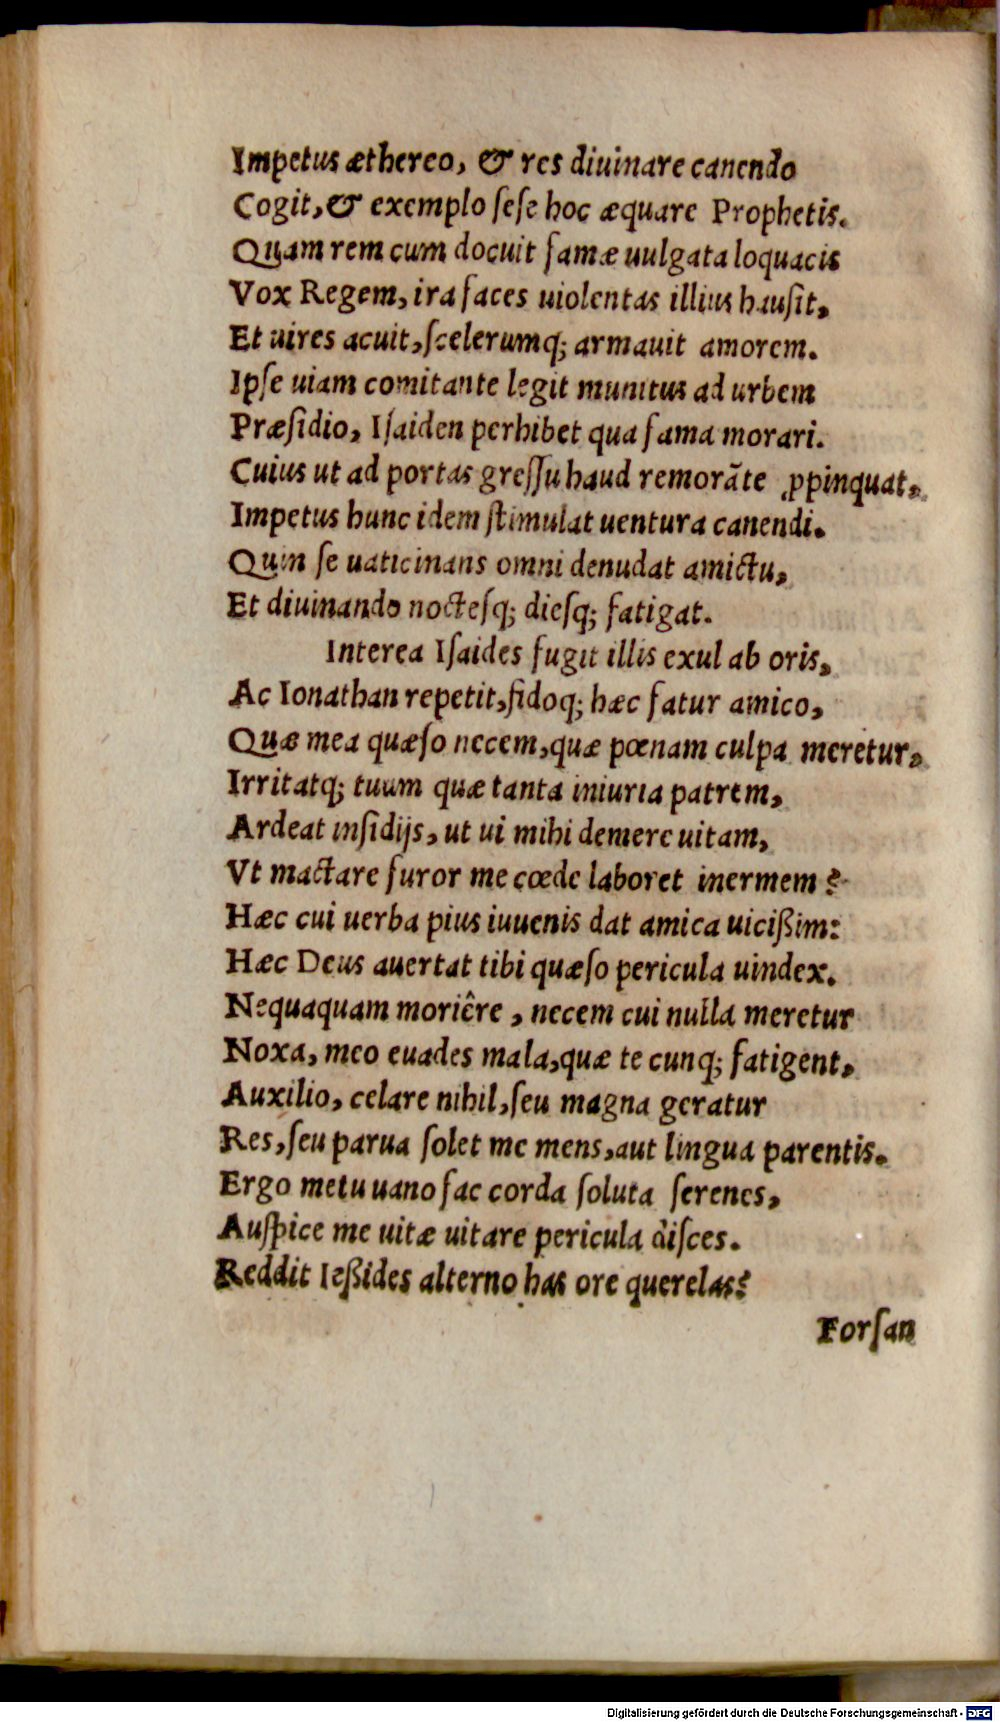 Impetus æthereo, & res diuinare canendo
Cogit, & exemplo ſeſe hoc æquare Prophetis.
Quam rem cum docuit famæ uulgata loquacis
Vox Regem, ira faces uiolentas illius hauſit,
Et uires acuit, ſcelerumq; armauit amorem.
Ipſe uiam comitante legit munitus ad urbem
Præſidio, Iſaiden perhibet qua fama morari.
Cuius ut ad portas greſſu haud remorãte ꝓpinquat,
Impetus hunc idem ſtimulat uentura canendi.
Quin ſe uaticinans omni denudat amictu,
Et diuinando noctesq; dieſq; fatigat.
Interea Iſaides fugit illis exul ab oris,
Ac Ionathan repetit, fidoq; hæc fatur amico,
Quæ mea quæſo necem, quæ pœnam culpa meretur,
Irritatq; tuum quæ tanta iniuria patrem,
Ardeat inſidijs, ut ui mihi demere uitam,
Vt mactare furor me cœde laboret inermem?
Hæc cui uerba pius iuuenis dat amica uicißim:
Hæc Deus auertat tibi quæſo pericula uindex.
Nequaquam moriêre, necem cui nulla meretur
Noxa, meo euades mala, quæ te cunq; fatigent,
Auxilio, celare nihil, ſeu magna geratur
Res, ſeu parua ſolet me mens, aut lingua parentis.
Ergo metu uano fac corda ſoluta ſerenes,
Auſpice me uitæ uitare pericula diſces.
Reddit Ießides alterno has ore querelas?
Forſan
Digitalisierung gefördert durch die Deutsche Forschungsgemeinschaft - DFG